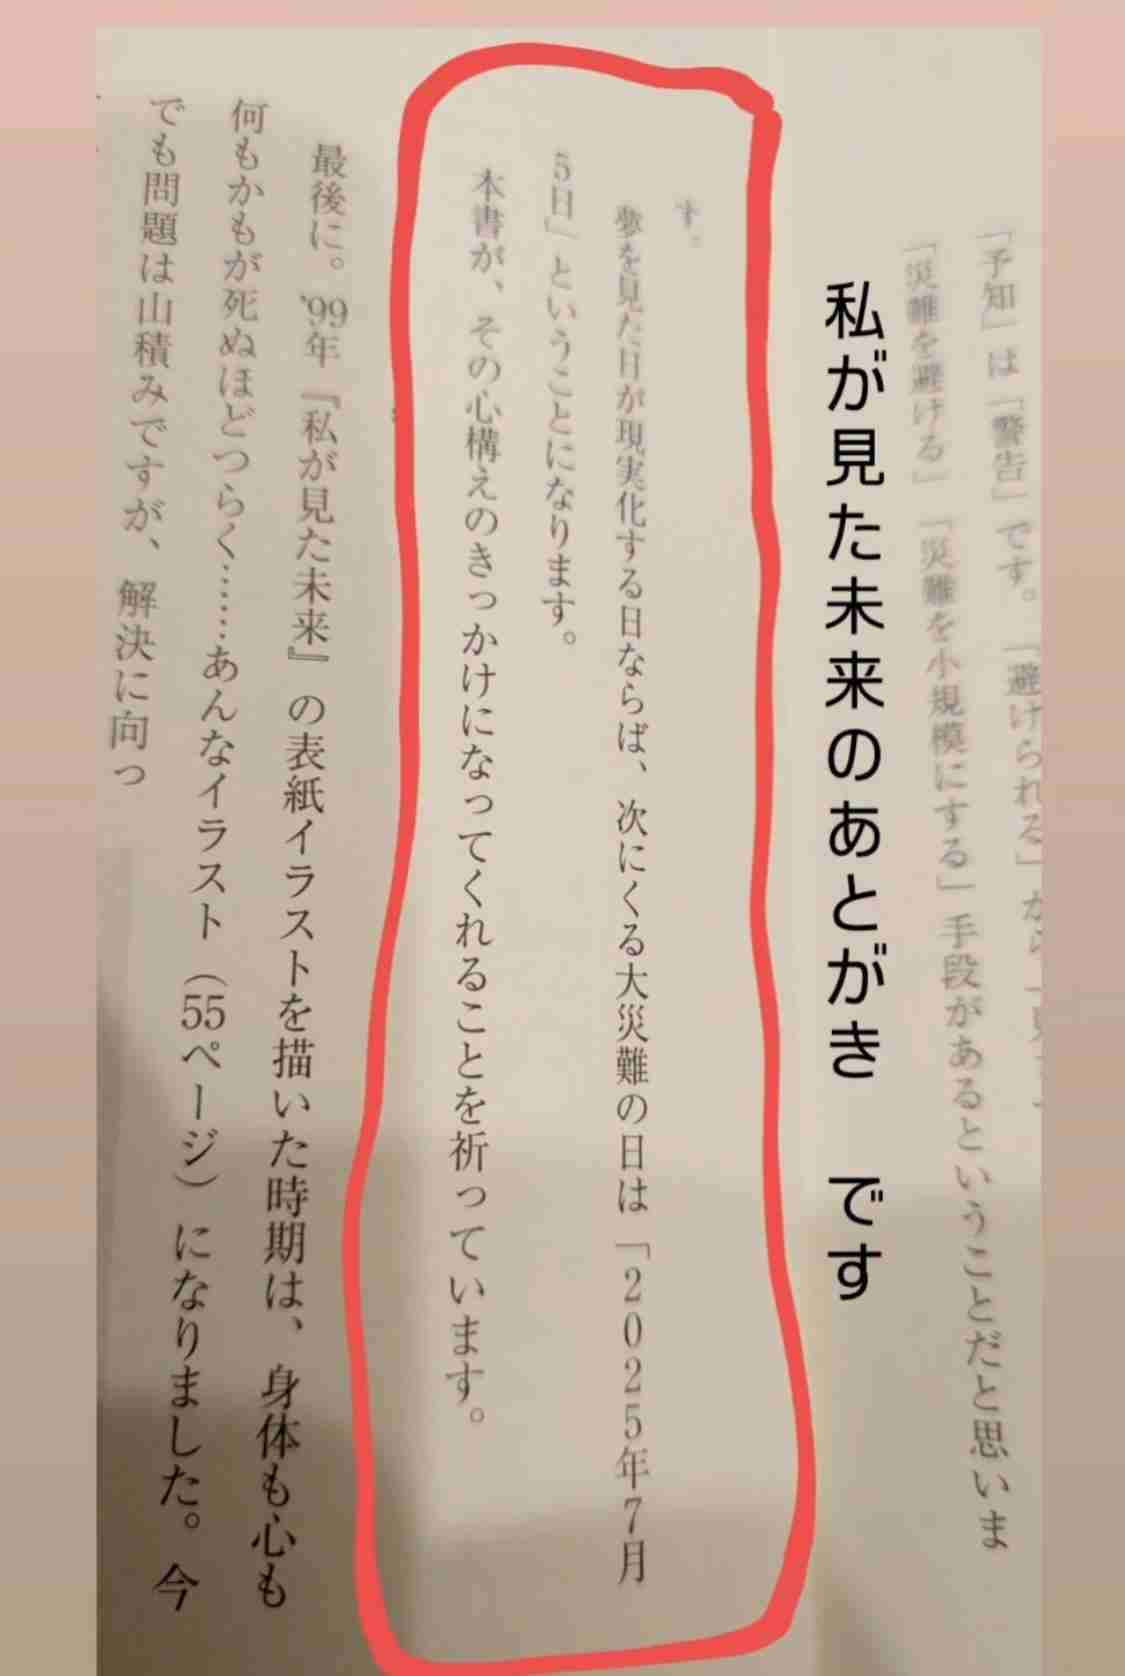 「予知」は「警告」です。「避けられる」から
「災難を避ける」「災難を小規模にする」手段があるということだと思いま
私が見た未来のあとがき　です
す。
夢を見た日が現実化する日ならば、次にくる大災難の日は「2025年7月
5日」ということになります。
本書が、その心構えのきっかけになってくれることを祈っています。
最後に。'99年『私が見た未来』の表紙イラストを描いた時期は、身体も心も
何もかもが死ぬほどつらく……あんなイラスト（55ページ）になりました。今
でも問題は山積みですが、解決に向っ